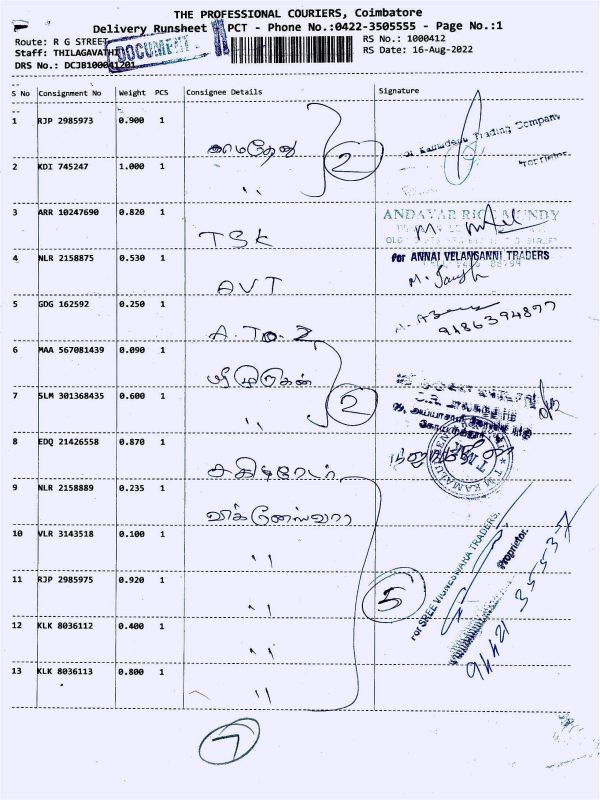 THE PROFESSIONAL COURIERS, Coimbatore
Delivery Runsheet PCT - Phone No.:0422-3505555 - Page No.:1
Route: R G STREET
RS No.: 1000412
Staff: THILAGAVATHI
DOCUMENT
RS Date: 16-Aug-2022
DRS No.: DCJB100041201
S No Consignment No Weight PCS Consignee Details Signature
1 RJP 2985973 0.900 1 காமதேனு
2
Kamadenu Trading Company
Proprietor.
2 KDI 745247 1.000 1 "
3 ARR 10247690 0.820 1 TSK
ANDAVAR RICE MUNDY
4 NLR 2158875 0.530 1 AVT
For ANNAI VELANGANNI TRADERS
5 GDG 162592 0.250 1 A.To.Z
9486394877
6 MAA 567081439 0.090 1 ஸ்ரீ முருகன்
7 SLM 301368435 0.600 1 "
2
8 EDQ 21426558 0.870 1
9 NLR 2158889 0.235 1 விக்னேஸ்வரா
10 VLR 3143518 0.100 1 "
11 RJP 2985975 0.920 1 "
5
For SREE VIGNESWARA TRADERS,
Proprietor.
12 KLK 8036112 0.400 1 "
13 KLK 8036113 0.800 1 "
7